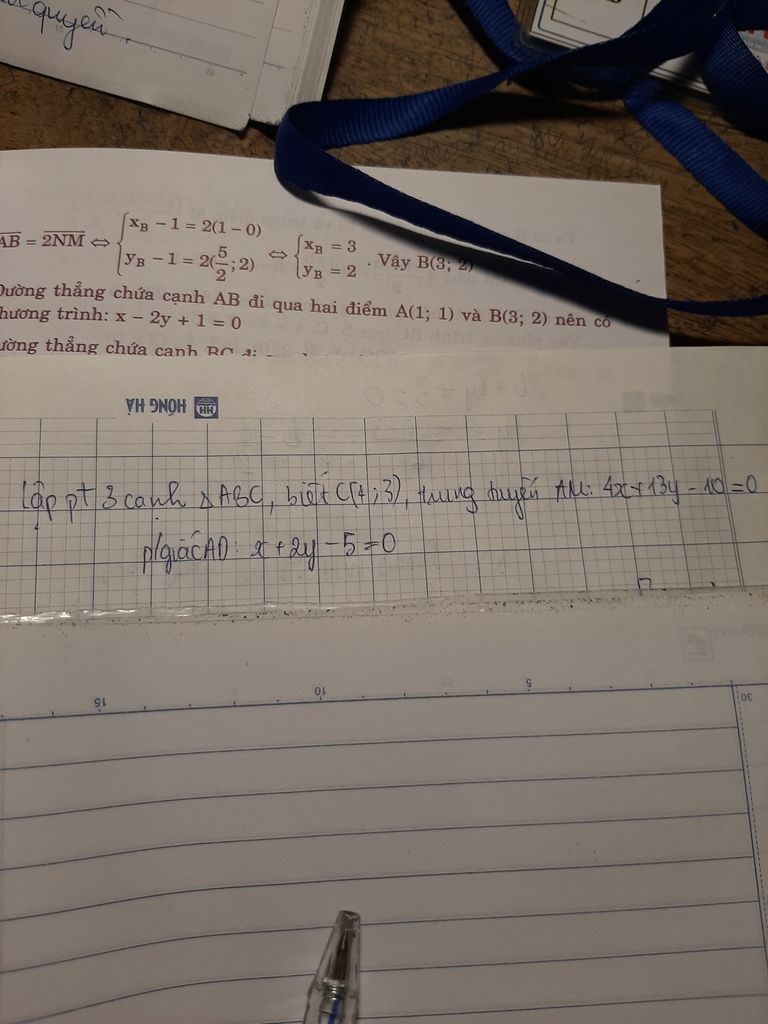 quyền.
AB = 2NM ⇔ { x_B − 1 = 2(1 − 0)
y_B − 1 = 2(5/2; 2) ⇔ { x_B = 3
y_B = 2 . Vậy B(3; 2)
Đường thẳng chứa cạnh AB đi qua hai điểm A(1; 1) và B(3; 2) nên có
phương trình: x − 2y + 1 = 0
ường thẳng chứa cạnh BC đi
HỒNG HÀ
HH
Lập pt 3 cạnh △ABC, biết C(4;3), trung tuyến AM: 4x+13y−10=0
p/giác AD: x+2y−5=0
15
10
5
30